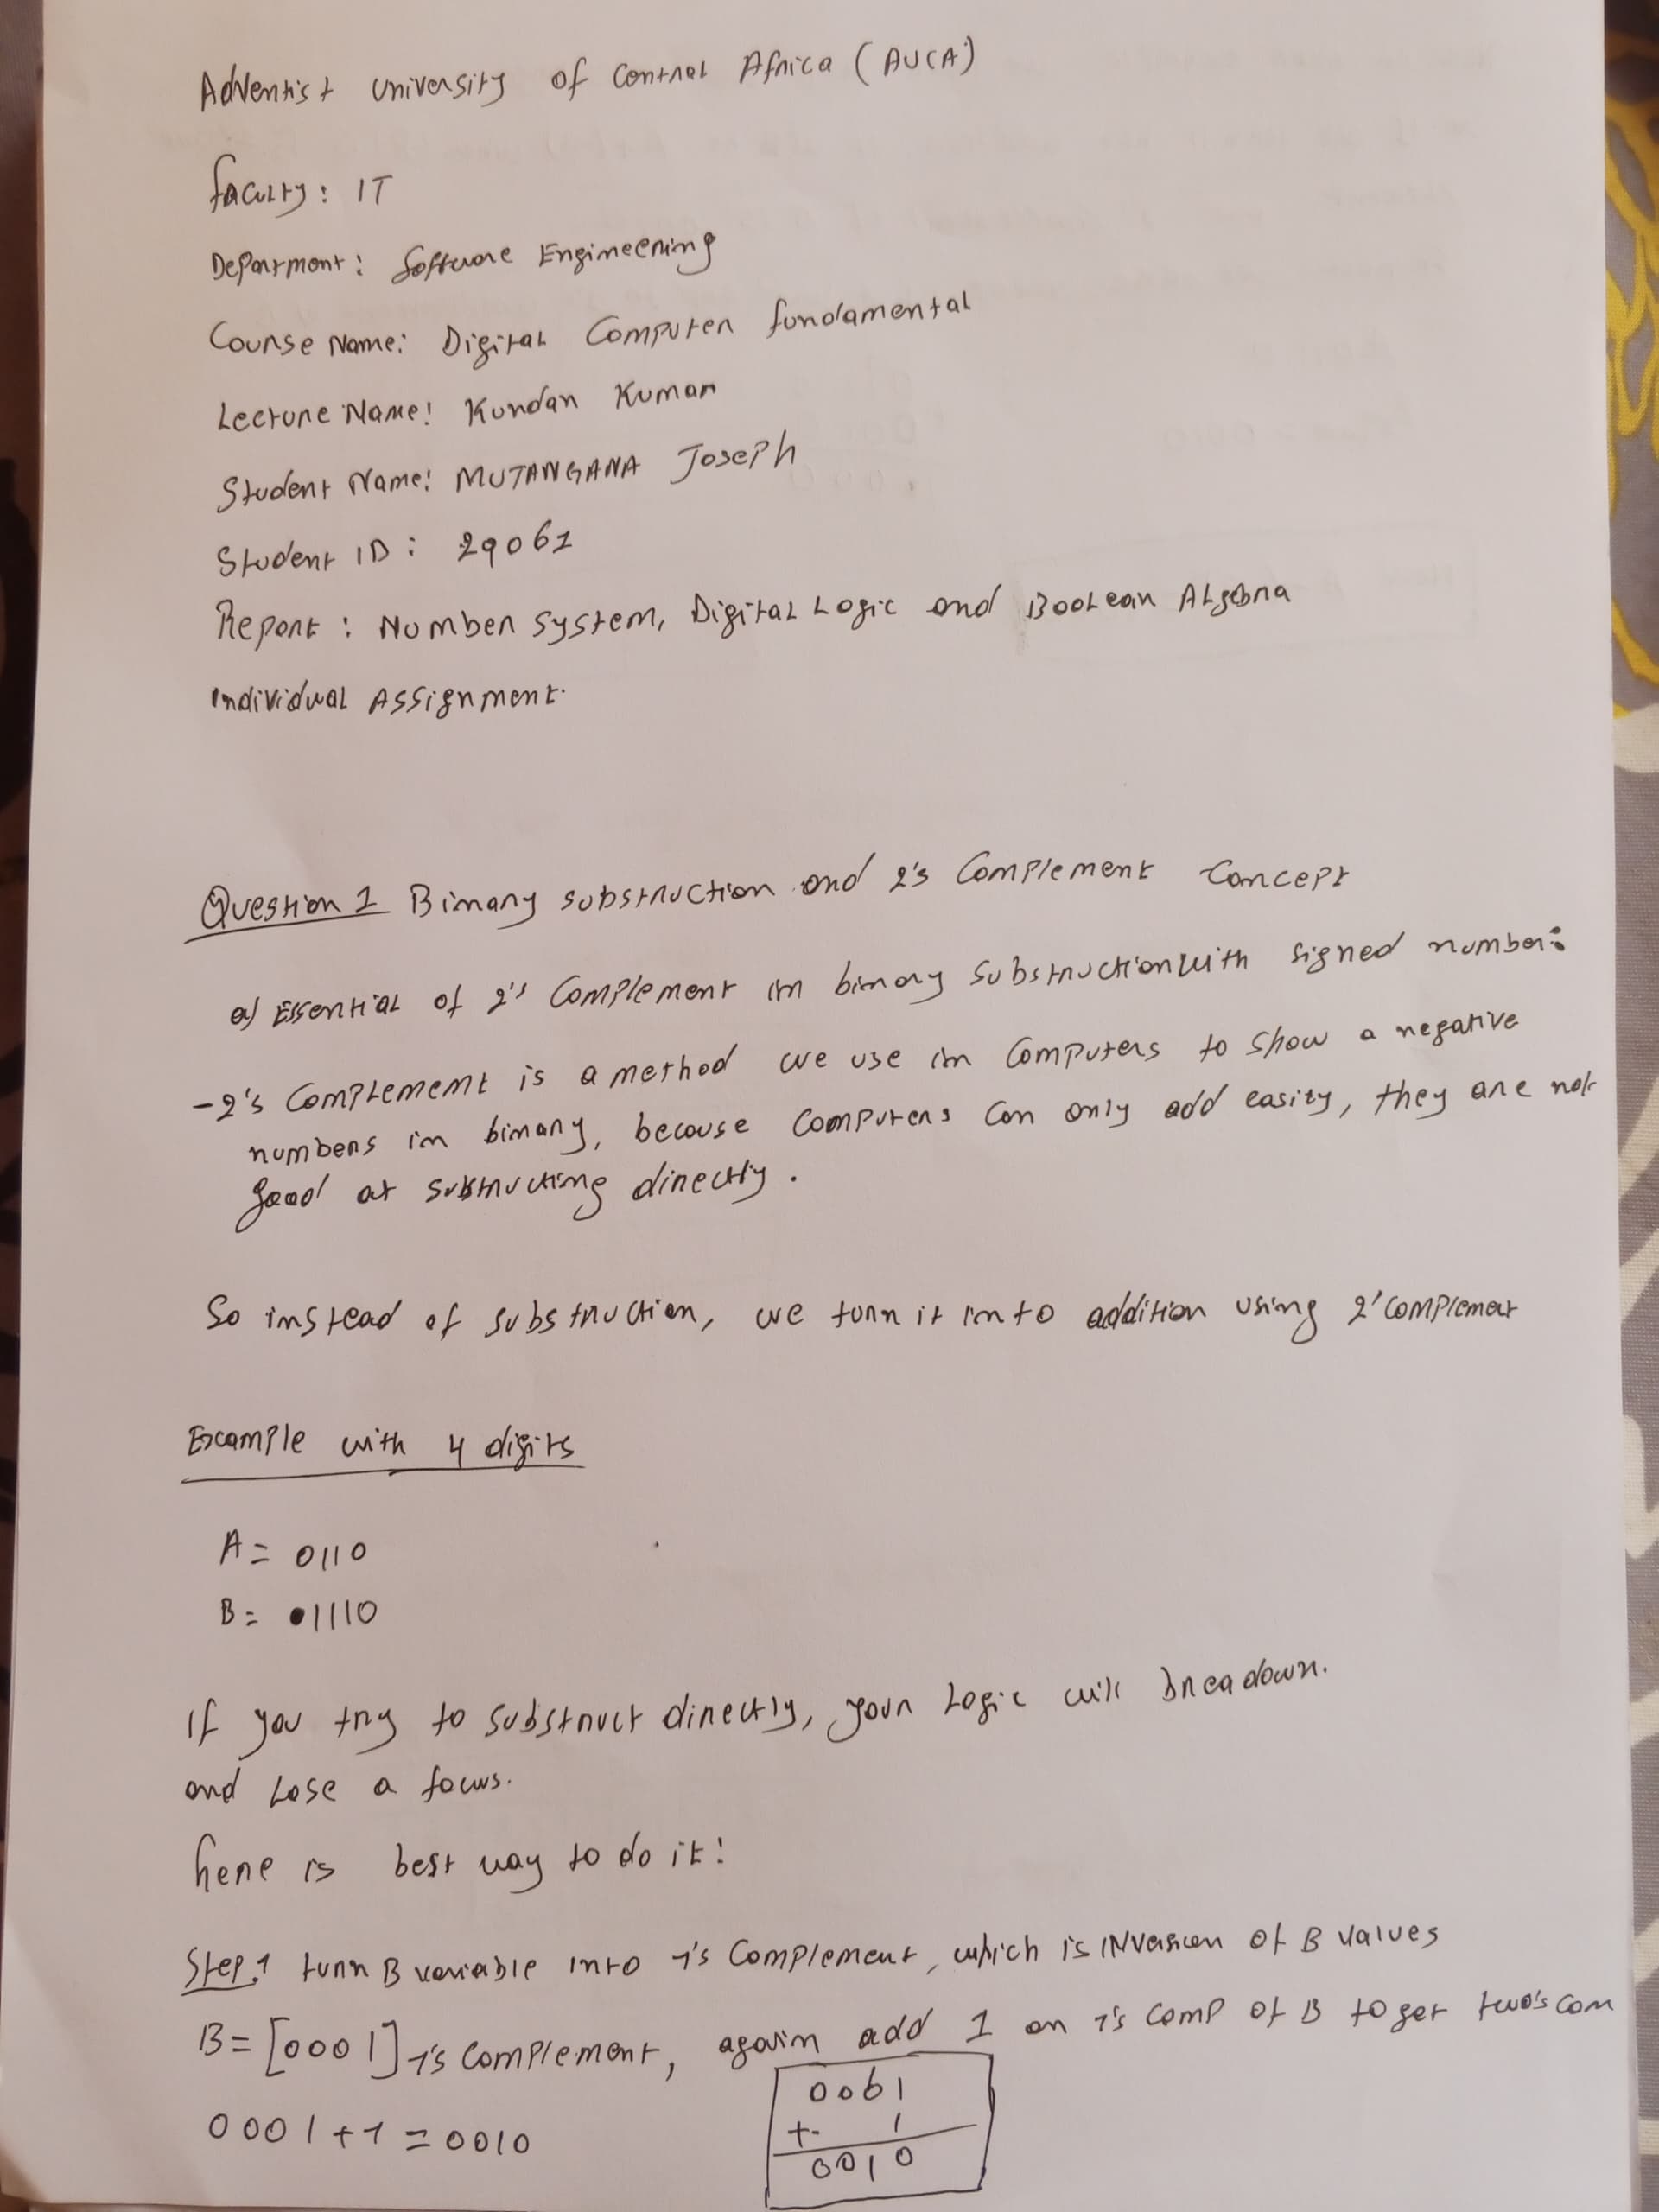 Adventist University of Central Africa (AUCA)
Faculty: IT
Department: Software Engineering
Course Name: Digital Computer fundamental
Lecture Name: Kundan Kumar
Student Name: MUTANGANA Joseph
Student ID: 29061
Report: Number system, Digital Logic and Boolean Algebra
Individual Assignment.
Question 1 Binary substruction and 2's Complement Concept
a) Essential of 2's Complement in binary substruction with signed number:
-2's Complement is a method we use in Computers to show a negative
numbers in binary, because Computers Can only add easity, they are not
good at substructing directly.
So instead of substruction, we turn it into addition using 2' Complement
Example with 4 digits
A = 0110
B = 1110
If you try to substruct directly, your Logic will breadown.
and Lose a focus.
here is best way to do it!
Step.1 turn B variable into 1's Complement, which is INVersion of B values
B = [0001] 1's Complement, again add 1 on 1's Comp of B to get two's com
0001 + 1 = 0010
0001
+ 1
0010